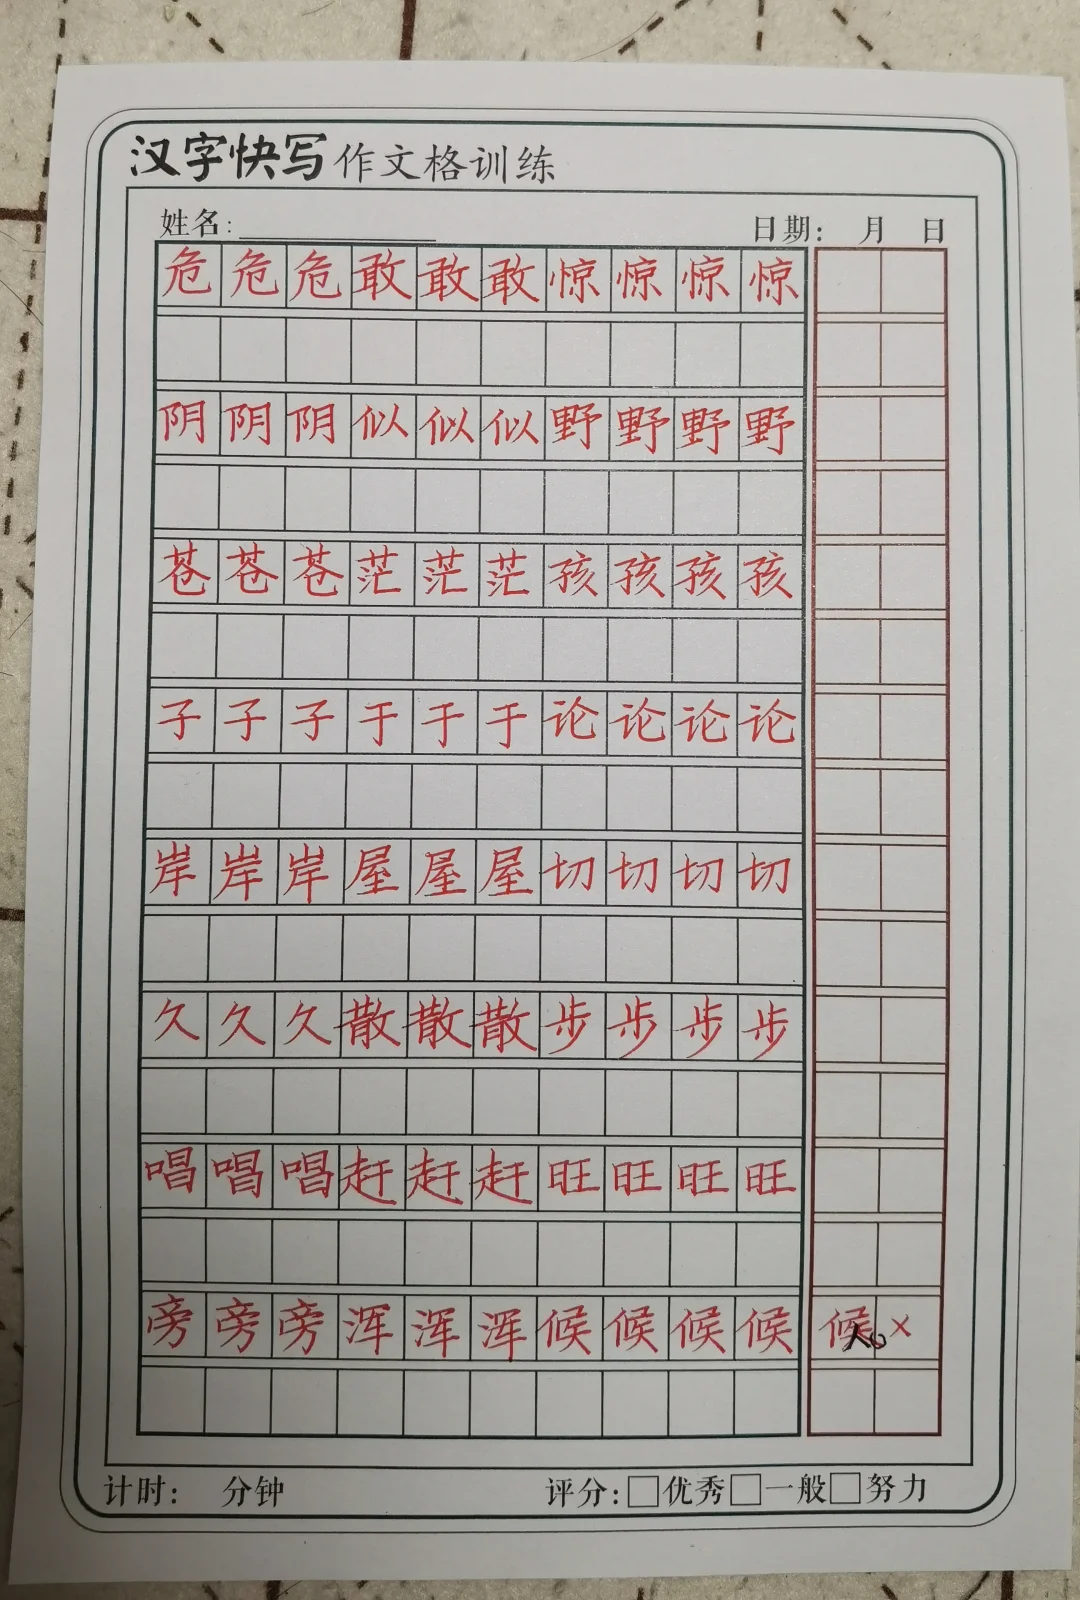 汉字快写作文格训练
姓名： 日期： 月 日
危危危敢敢敢惊惊惊惊
阴阴阴似似似野野野野
苍苍苍茫茫茫孩孩孩孩
子子子于于于论论论论
岸岸岸屋屋屋切切切切
久久久散散散步步步步
唱唱唱赶赶赶旺旺旺旺
旁旁旁浑浑浑候候候候 候×
计时： 分钟 评分：□优秀□一般□努力